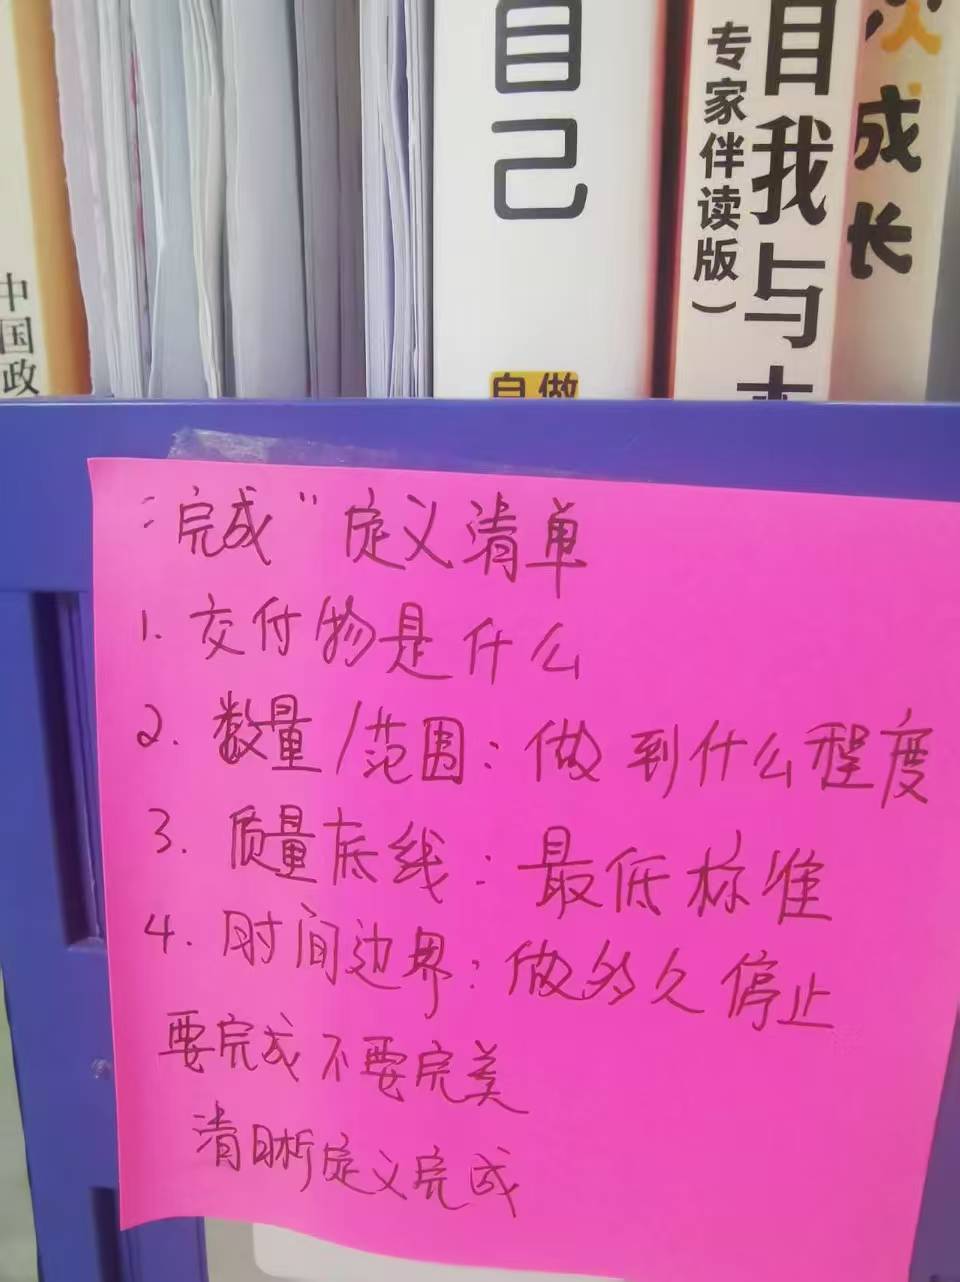 中国政
自己
自做
专家伴读版）
目我与
次成长
“完成”定义清单
1. 交付物是什么
2. 数量/范围：做到什么程度
3. 质量底线：最低标准
4. 时间边界：做多久停止
要完成不要完美
清晰定义完成